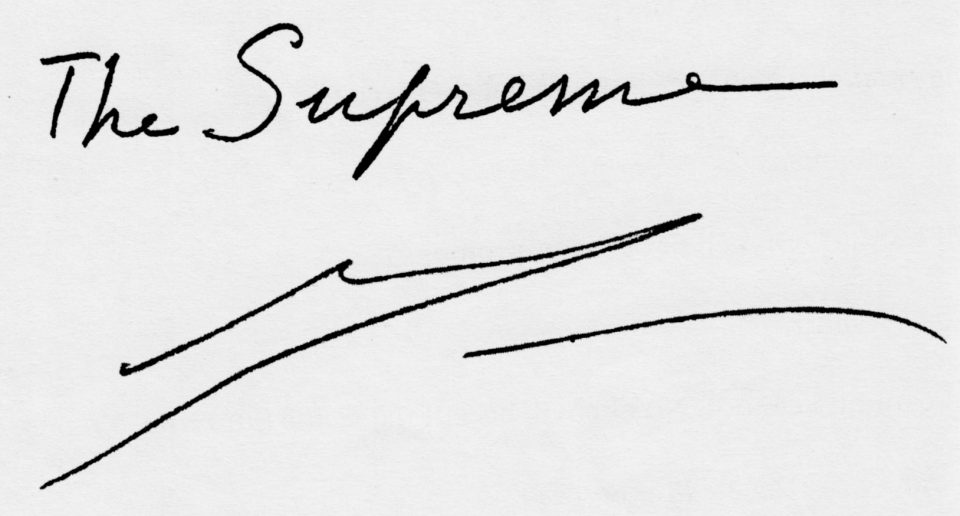 The Supreme